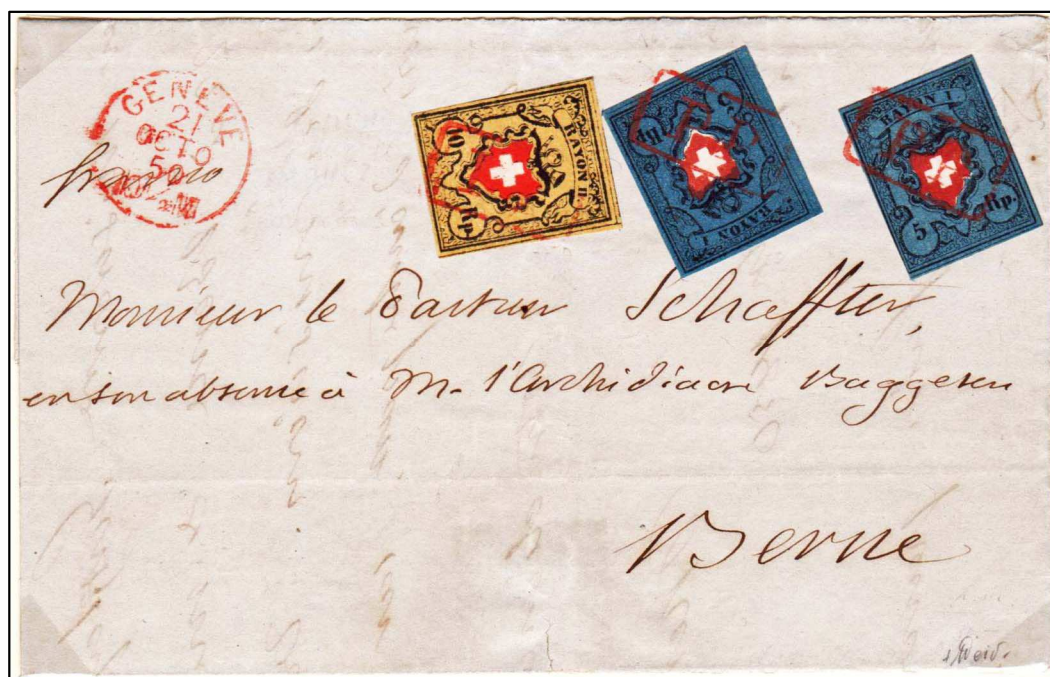 GENEVE
21
OCTO
50
franco
10
Rp.
RAYON II.
RAYON I.
RAYON I.
5
Rp.
Monieur le Pasteur Schaffter,
en son absence à M. l'Archidiacre Baggesen
Berne